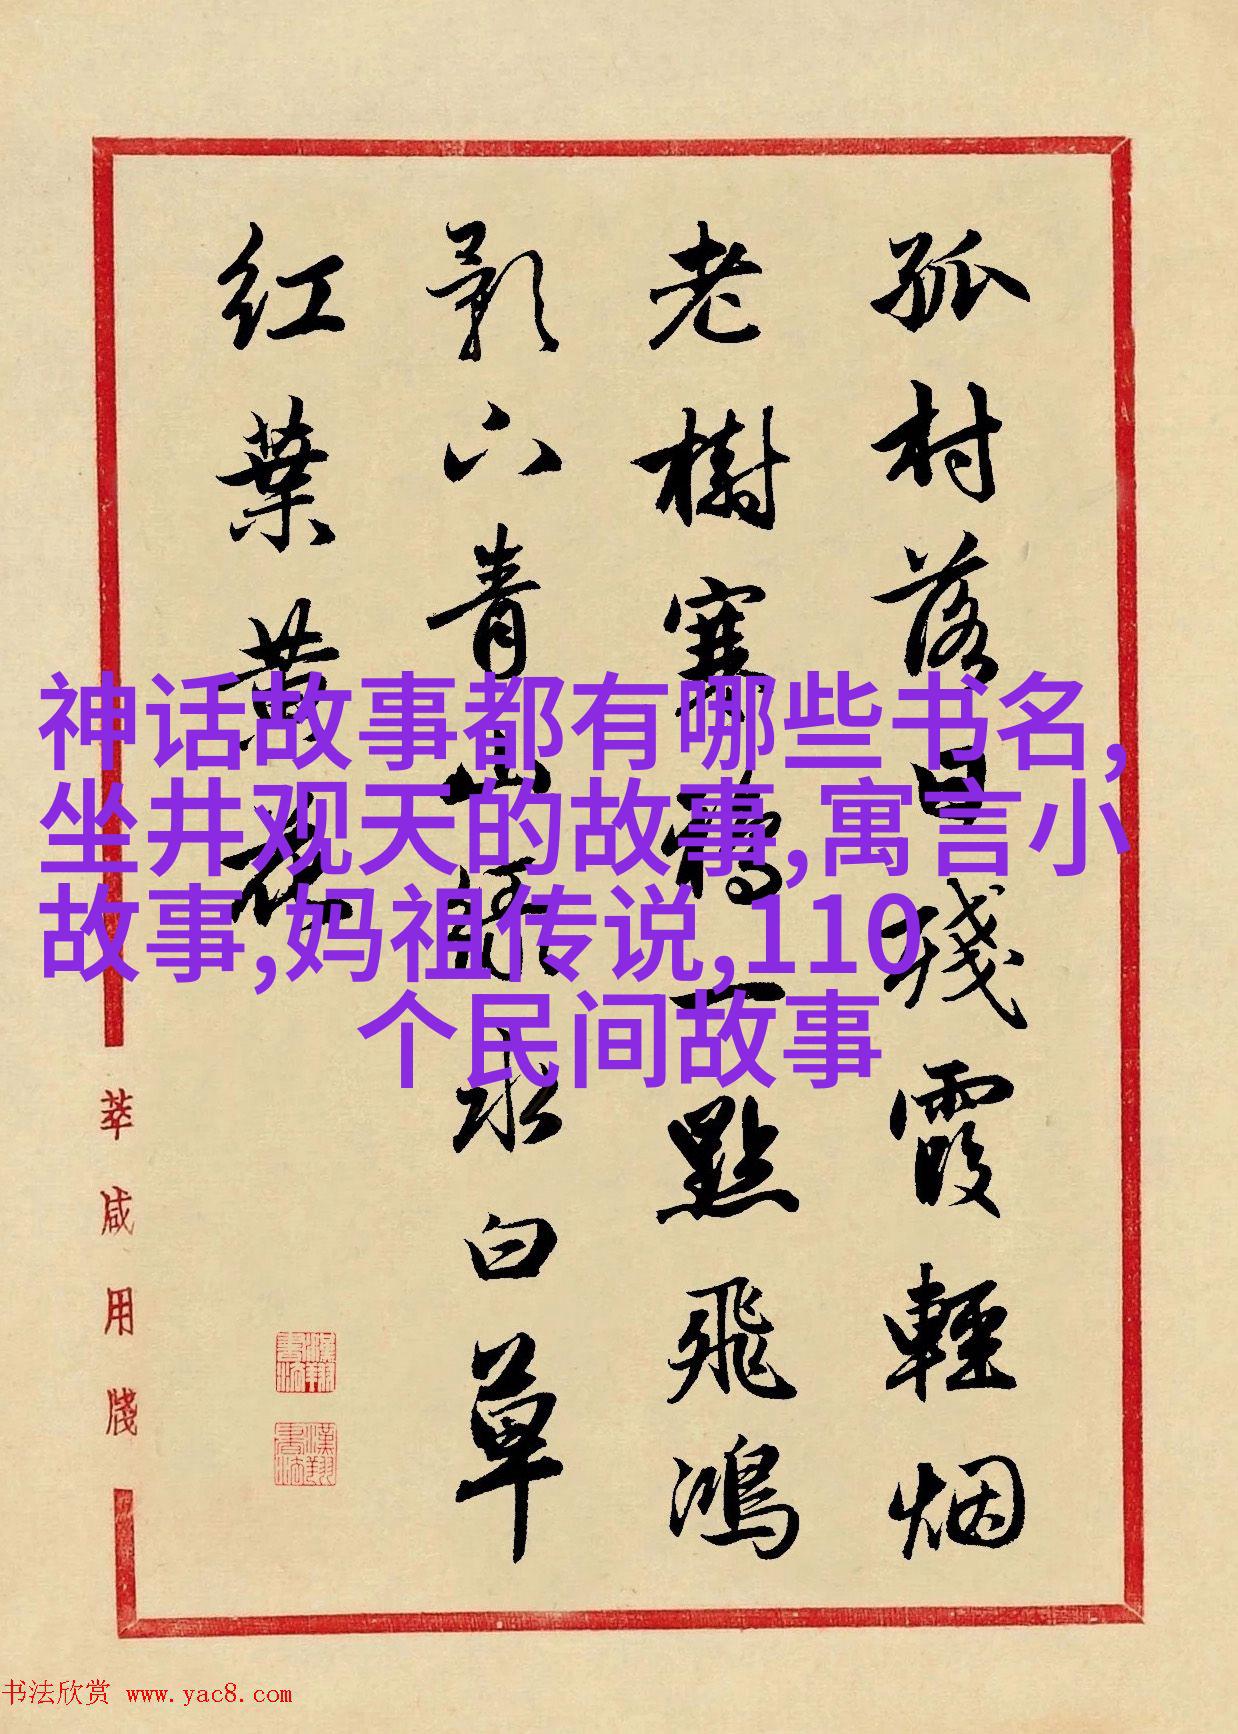 孤村落日残霞輕烟
老樹寒鴉一點飛鴻
影下青山綠水白草
红葉黄花
神话故事都有哪些书名,
坐井观天的故事,寓言小
故事,妈祖传说,110
个民间故事
萃
用牋
书法欣赏 www.yac8.com